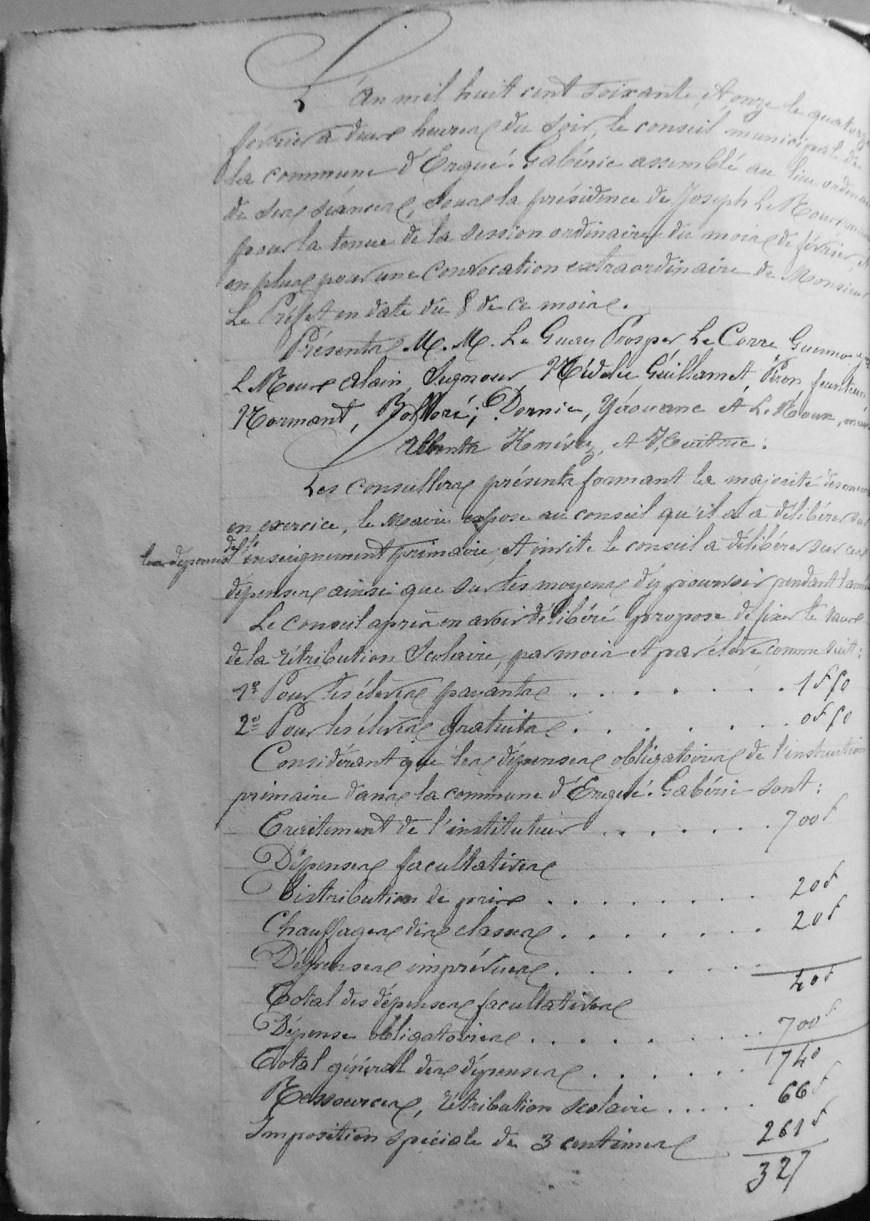 L'an mil huit cent soixante et onze le quatorze
février à deux heures du soir, le conseil municipal de
la commune d'Ergué-Gabéric assemblé au lieu ordinaire
de ses séances, sous la présidence de Joseph Le Mour
pour la tenue de la session ordinaire du mois de février, et
en plus pour une convocation extraordinaire de Monsieur
Le Préfet en date du 8 de ce mois.
Présents M. M. Le Guay Prosper Le Corre
Le Moux Alain, Signour Nédélec Guillamet
Normant, Bolloré, Dornic, et Le Roux,
Absents et
Les consullers présents formant la majorité des
en exercice, le maire expose au conseil qu'il a à délibérer sur
les dépenses de l'enseignement primaire, et invite le conseil à délibérer sur ces
dépenses ainsi que sur les moyens d'y pourvoir pendant
Le conseil après en avoir délibéré propose de fixer le taux
de la rétribution Scolaire, par mois et par élève comme suit:
1º Pour les élèves payants . . . . . . . 1f 50
2º Pour les élèves gratuits . . . . . . . 0f 50
Considérant que les dépenses obligatoires de l'instruction
primaire dans la commune d'Ergué-Gabéric sont:
Traitement de l'instituteur . . . . . . 700f
Dépenses facultatives
Distribution de prix . . . . . . . . 20f
Chauffage des classes . . . . . . . . 20f
Dépenses imprévues . . . . . . .
Total des dépenses facultatives 40f
Dépense obligatoires . . . . . . 700f
Total général des dépenses . . . . . . 740
Ressources, rétribution scolaire . . . . . 66f
Imposition spéciale de 3 centimes 261f
327